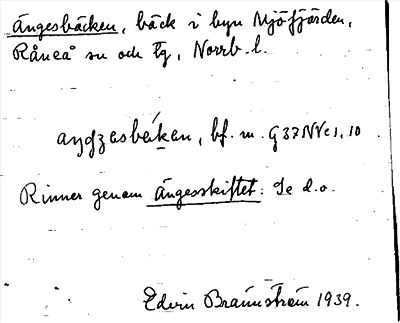 Ängesbäcken, bäck i byn Mjöfjärden,
Råneå sn och tg, Norrb. l.
bf. m. G37NVc1,10
Rinner genom Ängesskiftet: Se d.o.
Edvin Brännström 1939.